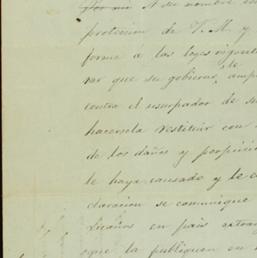 A su nombre en
proteccion de V. M. y
forme a las leyes vigente
rar que su gobierno, le amp
contra el usurpador de su
hacersela restituir con
de los daños y perjuici
le haya causado y le c
claracion se comunique
en pais extrang
que la publiquen en